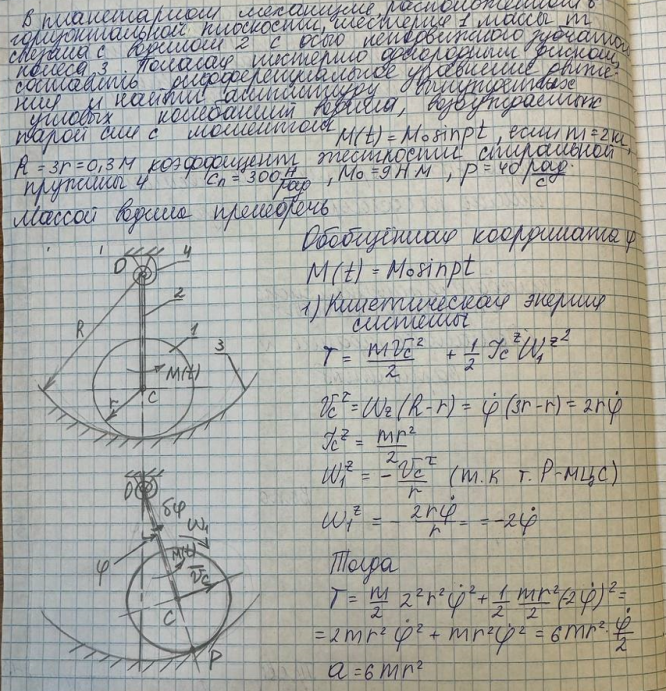 В планетарном механизме расположенном в
горизонтальной плоскости, шестерня 1 массы m
с водилом 2 с осью неподвижного зубчатого
колеса 3 Полагая шестерню однородным диском,
составить дифференциальное уравнение движе-
ния и найти амплитуду вынужденных
угловых колебаний водила, возбуждаемых
парой сил с моментом
M(t) = M₀ sin pt, если m = 2кг,
R = 3r = 0,3 м коэффициент жесткости спиральной
пружины 4 Cп = 300 Н/рад, M₀ = 9 Н м, p = 40 рад/с.
Массой водила пренебречь
Обобщённая координата φ
M(t) = M₀ sin pt
1) Кинетическая энергия
системы
T = mVc²/2 + 1/2 Jcᶻ W₁ᶻ²
Vcᵗ = W₂(R-r) = φ̇ (3r-r) = 2rφ̇
Jcᶻ = mr²/2
W₁ᶻ = - Vcᵗ/r (т.к т. P - МЦС)
W₁ᶻ = - 2rφ̇/r = = -2φ̇
Тогда
T = m/2 2²r²φ̇² + 1/2 mr²/2 (-2φ̇)² =
= 2mr²φ̇² + mr²φ̇² = 6mr² · φ̇/2
a = 6mr²
O
4
2
R
1
3
M(t)
r
C
O
δφ
W₁
φ
M(t)
Vc
C
P